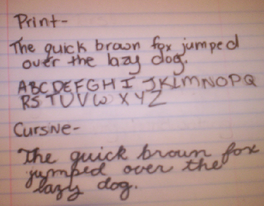 Print-
The quick brown fox jumped
over the lazy dog.
ABCDEFGHI JKLMNOPQ
RSTUVWXYZ
Cursive-
The quick brown fox
jumped over the
lazy dog.